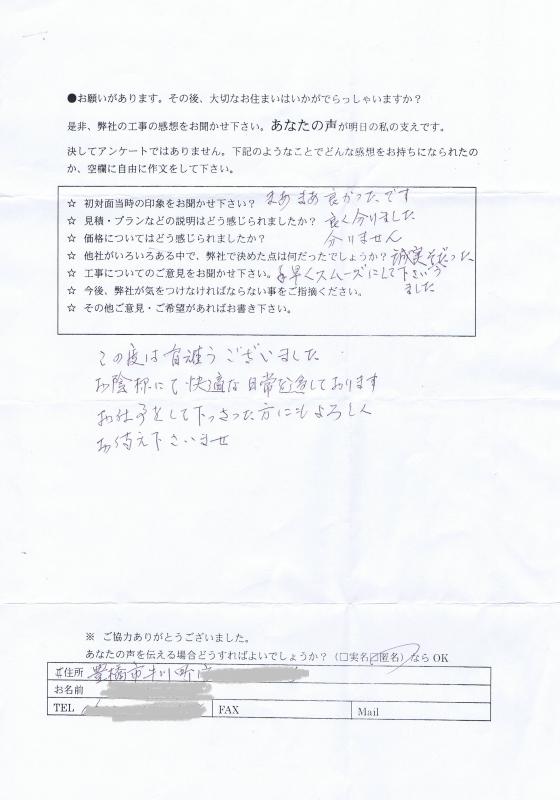 ●お願いがあります。その後、大切なお住まいはいかがでらっしゃいますか？
是非、弊社の工事の感想をお聞かせ下さい。あなたの声が明日の私の支えです。
決してアンケートではありません。下記のようなことでどんな感想をお持ちになられたの
か、空欄に自由に作文をして下さい。
☆ 初対面当時の印象をお聞かせ下さい？ まあまあ良かったです
☆ 見積・プランなどの説明はどう感じられましたか？ 良く分りました
☆ 価格についてはどう感じられましたか？ 分りません
☆ 他社がいろいろある中で、弊社で決めた点は何だったでしょうか？ 誠実そだった
☆ 工事についてのご意見をお聞かせ下さい。 手早くスムーズにして下さいう
ました
☆ 今後、弊社が気をつけなければならない事をご指摘ください。
☆ その他ご意見・ご希望があればお書き下さい。
この度は有難うございました
お陰様にて快適な日常を過しております
お仕事をして下っさった方にもよろしく
お伝え下さいませ
※ ご協力ありがとうございました。
あなたの声を伝える場合どうすればよいでしょうか？（□実名☑匿名）ならOK
ご住所 豊橋市牛川町
お名前
TEL FAX Mail